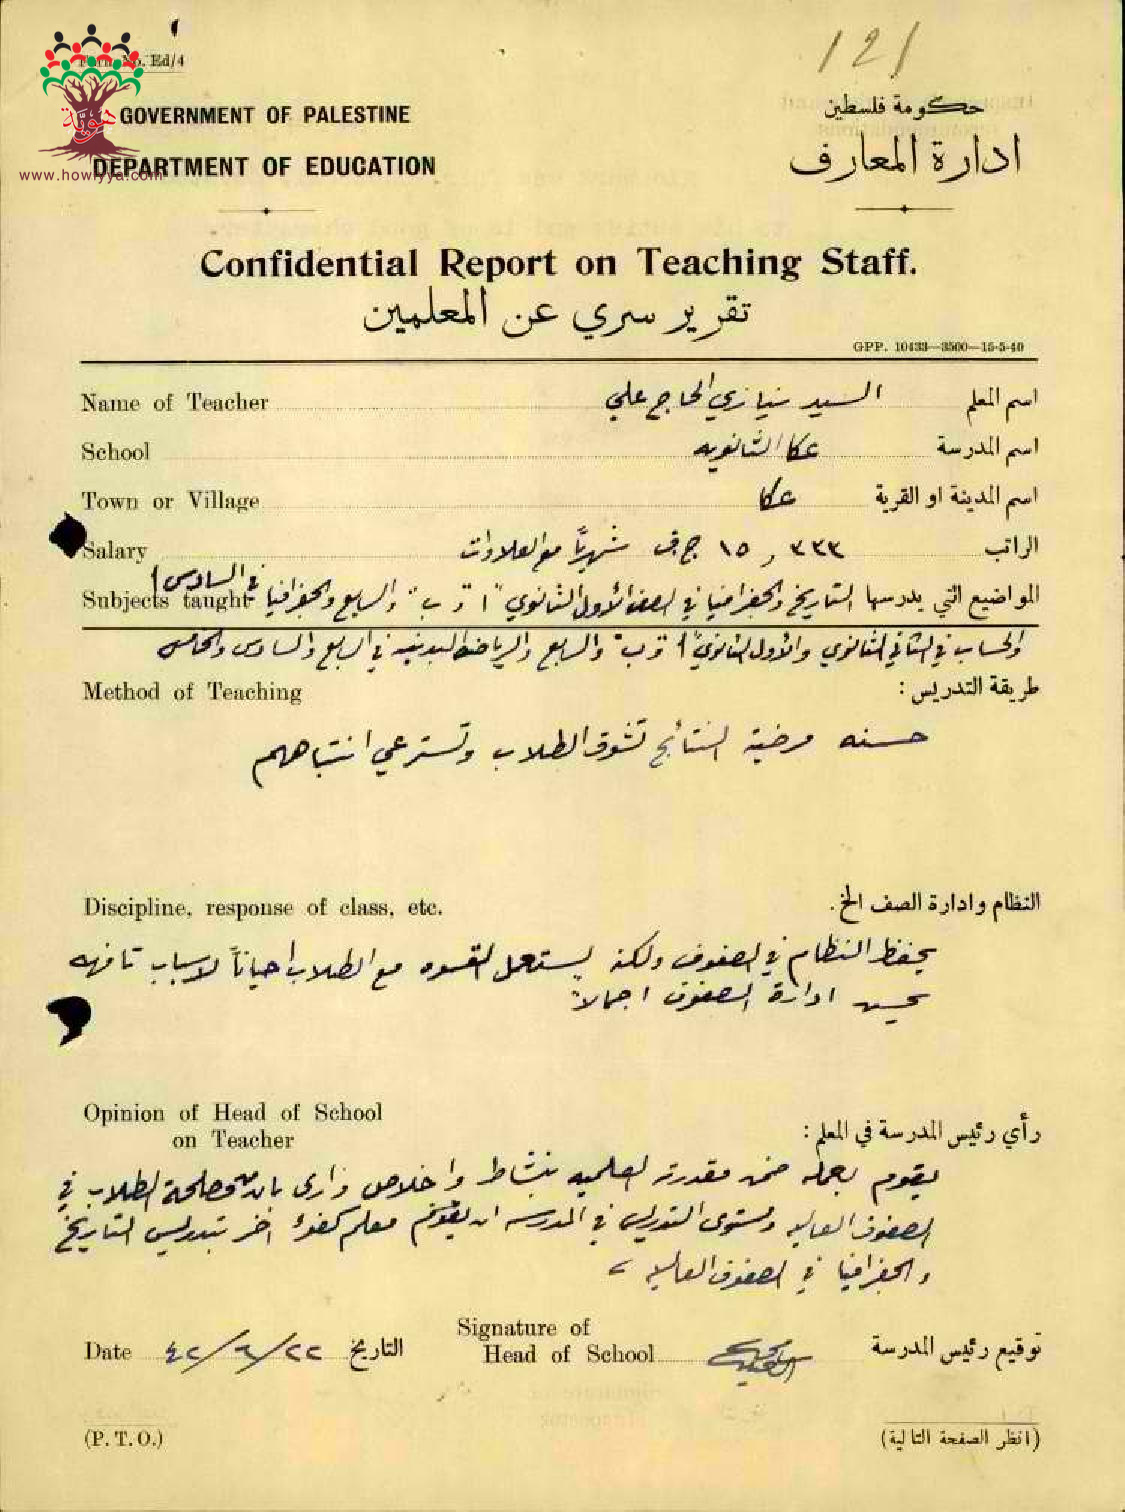 121
Form No. Ed/4
هويّة
www.howiyya.com
GOVERNMENT OF PALESTINE
حكومة فلسطين
DEPARTMENT OF EDUCATION
ادارة المعارف
Confidential Report on Teaching Staff.
تقرير سري عن المعلمين
GPP. 10433—3500—15-5-40
Name of Teacher السيد نيازي الحاج علي اسم المعلم
School عكا الثانويه اسم المدرسة
Town or Village عكا اسم المدينة او القرية
Salary ٣٣٣ و ١٥ ج ف شهريًا مع العلاوات الراتب
Subjects taught المواضيع التي يدرسها التاريخ والجغرافيا في الصف الأول الثانوي "ا و ب" والسابع والجغرافيا في السادس
والحساب في الثاني الثانوي والأول الثانوي "ا و ب" والسابع والرياضة البدنيه في السابع والسادس والخامس
Method of Teaching طريقة التدريس :
حسنه مرضية النتائج تشوق الطلاب وتسترعي انتباههم
Discipline, response of class, etc. النظام وادارة الصف الخ.
يحفظ النظام في الصفوف ولكنه يستعمل القسوه مع الطلاب احياناً لاسباب تافهه
يحسن ادارة الصفوف اجمالاً
Opinion of Head of School
on Teacher
رأي رئيس المدرسة في المعلم :
يقوم بعمله ضمن مقدرته العلميه بنشاط واخلاص وارى بان مصلحة الطلاب في
الصفوف العاليه ومستوى التدريس في المدرسه ان يقوم معلم كفؤ اخر بتدريس التاريخ
والجغرافيا في الصفوف العاليه
Date ٤٢/٦/٢٢ التاريخ
Signature of
Head of School توقيع رئيس المدرسة
(P. T. O.) (انظر الصفحة التالية)